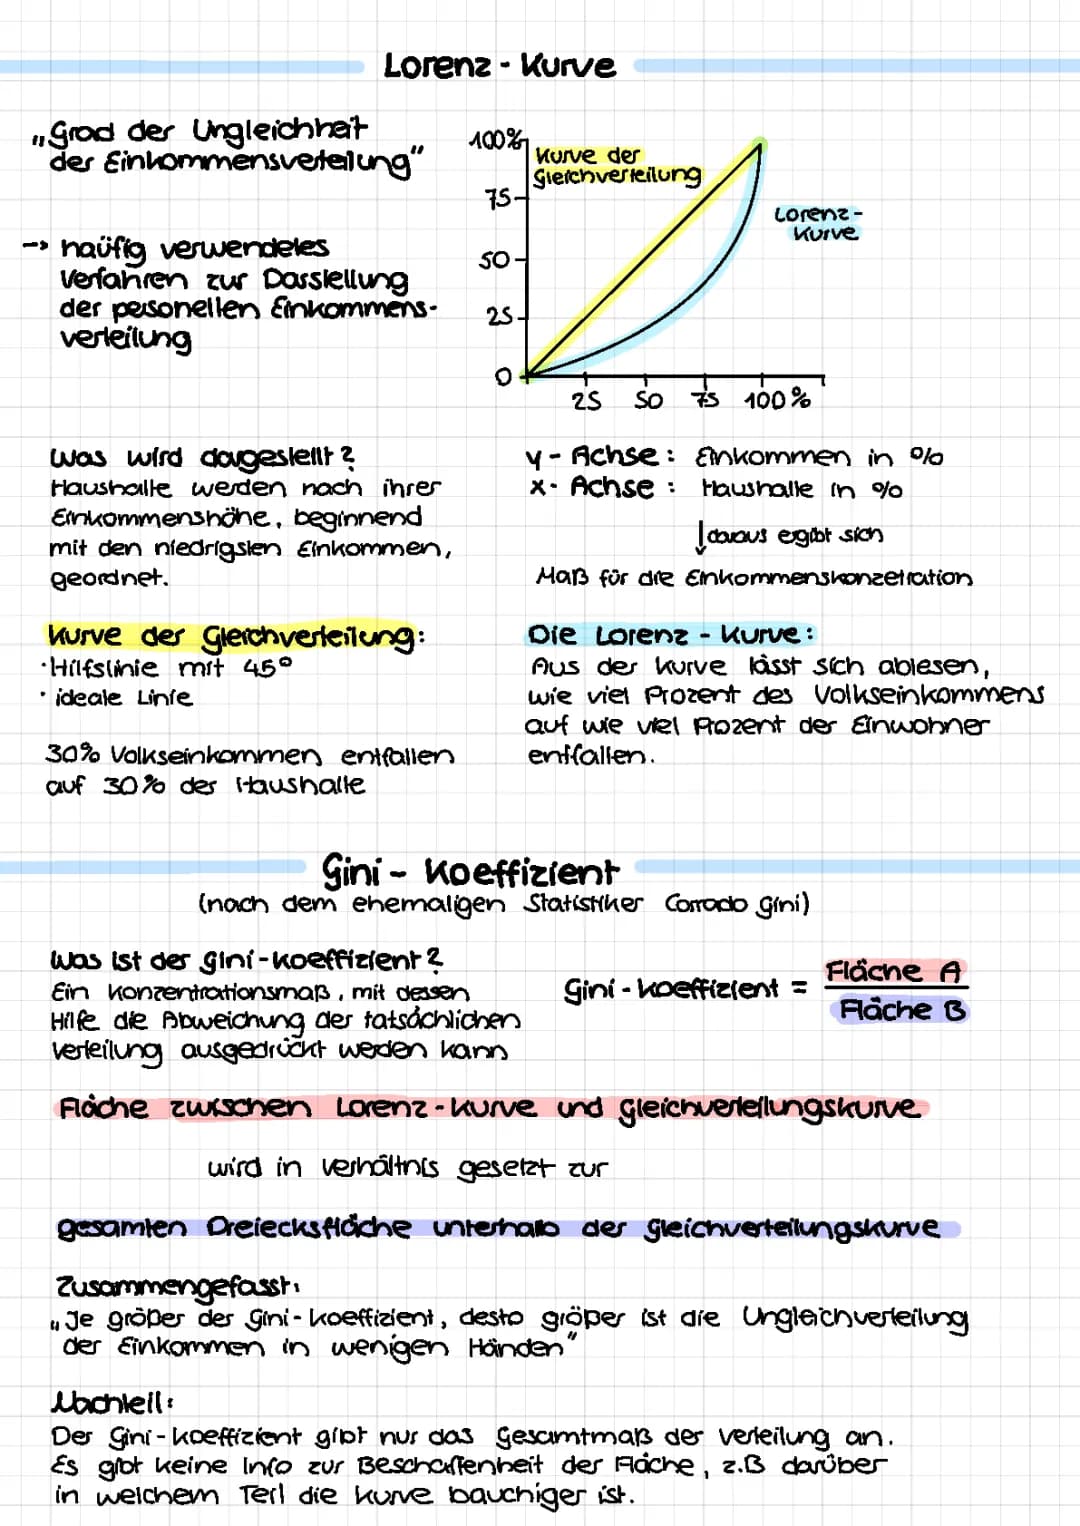 Lorenz - Kurve
„Grad der Ungleichheit
der Einkommensverteilung"
-> haüfig verwendetes
Verfahren zur Darstellung
der personellen Einkommens-
verteilung
100%
75
50
25
0
25 50 75 100%
Kurve der
Gleichverteilung
Lorenz-
Kurve
Was wird dargestellt?
Haushalte werden nach ihrer
Einkommenshöhe, beginnend
mit den niedrigsten Einkommen,
geordnet.
y - Achse: Einkommen in %
x - Achse: Haushalte in %
↓ daraus ergibt sich
Maß für die Einkommenskonzetration
Kurve der Gleichverteilung:
· Hilfslinie mit 45°
· ideale Linie
30% Volkseinkommen entfallen
auf 30% der Haushalte
Die Lorenz - Kurve:
Aus der Kurve lässt sich ablesen,
wie viel Prozent des Volkseinkommens
auf wie viel Prozent der Einwohner
entfallen.
Gini - Koeffizient
(nach dem ehemaligen Statistiker Corrado Gini)
Was ist der Gini-Koeffizient?
Ein Konzentrationsmaß, mit dessen
Hilfe die Abweichung der tatsächlichen
Verteilung ausgedrückt werden kann
Gini - Koeffizient = Fläche A
Fläche B
Fläche zwischen Lorenz - Kurve und Gleichverteilungskurve
wird in Verhältnis gesetzt zur
gesamten Dreiecksfläche unterhalb der Gleichverteilungskurve
Zusammengefasst:
„Je größer der Gini - Koeffizient, desto größer ist die Ungleichverteilung
der Einkommen in wenigen Händen"
Nachteil:
Der Gini - Koeffizient gibt nur das Gesamtmaß der Verteilung an.
Es gibt keine Info zur Beschaffenheit der Fläche, z.B darüber
in welchem Teil die Kurve bauchiger ist.